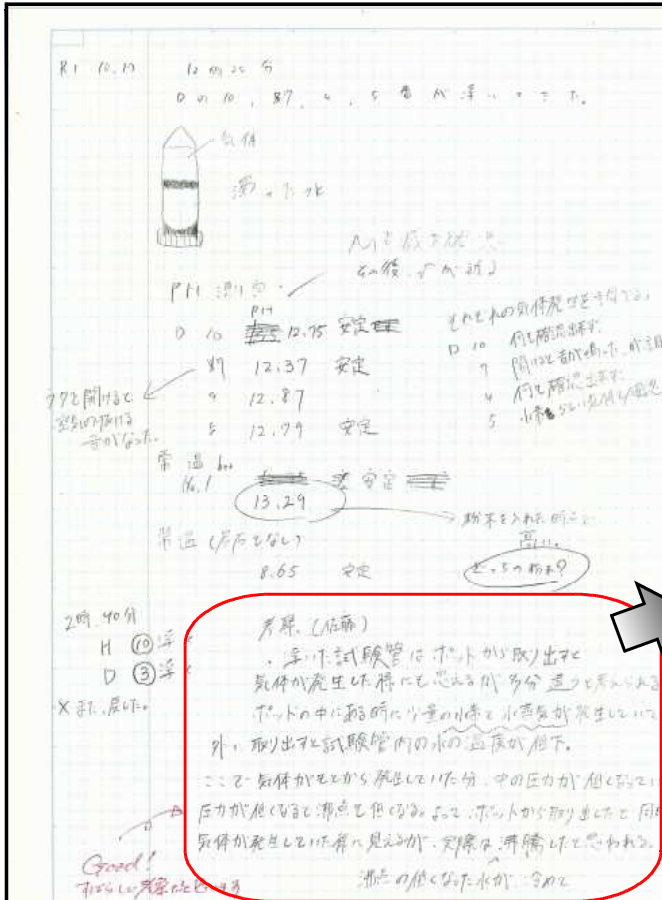 R1 10.17 12時25分
Dの10, 87, 4, 5番が浮いてきた。
気体
濁った水
その後
PH測定
PH
D 10 12.75 安定
87 12.37 安定
12.87
5 12.79 安定
ラクと開けると
空気の抜ける
音がなった。
それぞれの気体発生を
D 10 何も確認出来ず
7 開けると音が鳴った
4 何も確認出来ず
5
常温
No.1 安定
13.29
粉末を入れた時点で
高い。
常温 (なし)
8.65 安定
どっちの粉末?
2時40分
H ⑩ 浮く
D ③ 浮く
×また、戻した。
考察 (佐藤)
・浮いた試験管はポットから取り出すと
気体が発生した様にも思えるが多分違うと考えられる
ポットの中にある時に少量の水素と水蒸気が発生していて
外に取り出すと試験管内の水の温度が低下。
ここで気体がもとから発生していた分、中の圧力が低くなってい
圧力が低くなると沸点も低くなる。よって、ポットから取り出したと同時
気体が発生していた様に見えるが、実際は沸騰したと思われる。
沸点の低くなった水が、冷めて
Good!
すばらしい考察だと思います